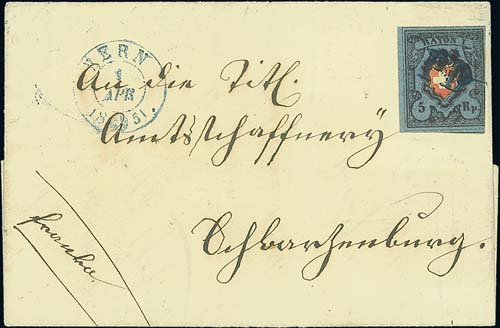 BERN
1
APR
1851.
RAYON I
5 Rp.
An die Titl.
Amtsschaffnerÿ
Schwarzenburg.
franko